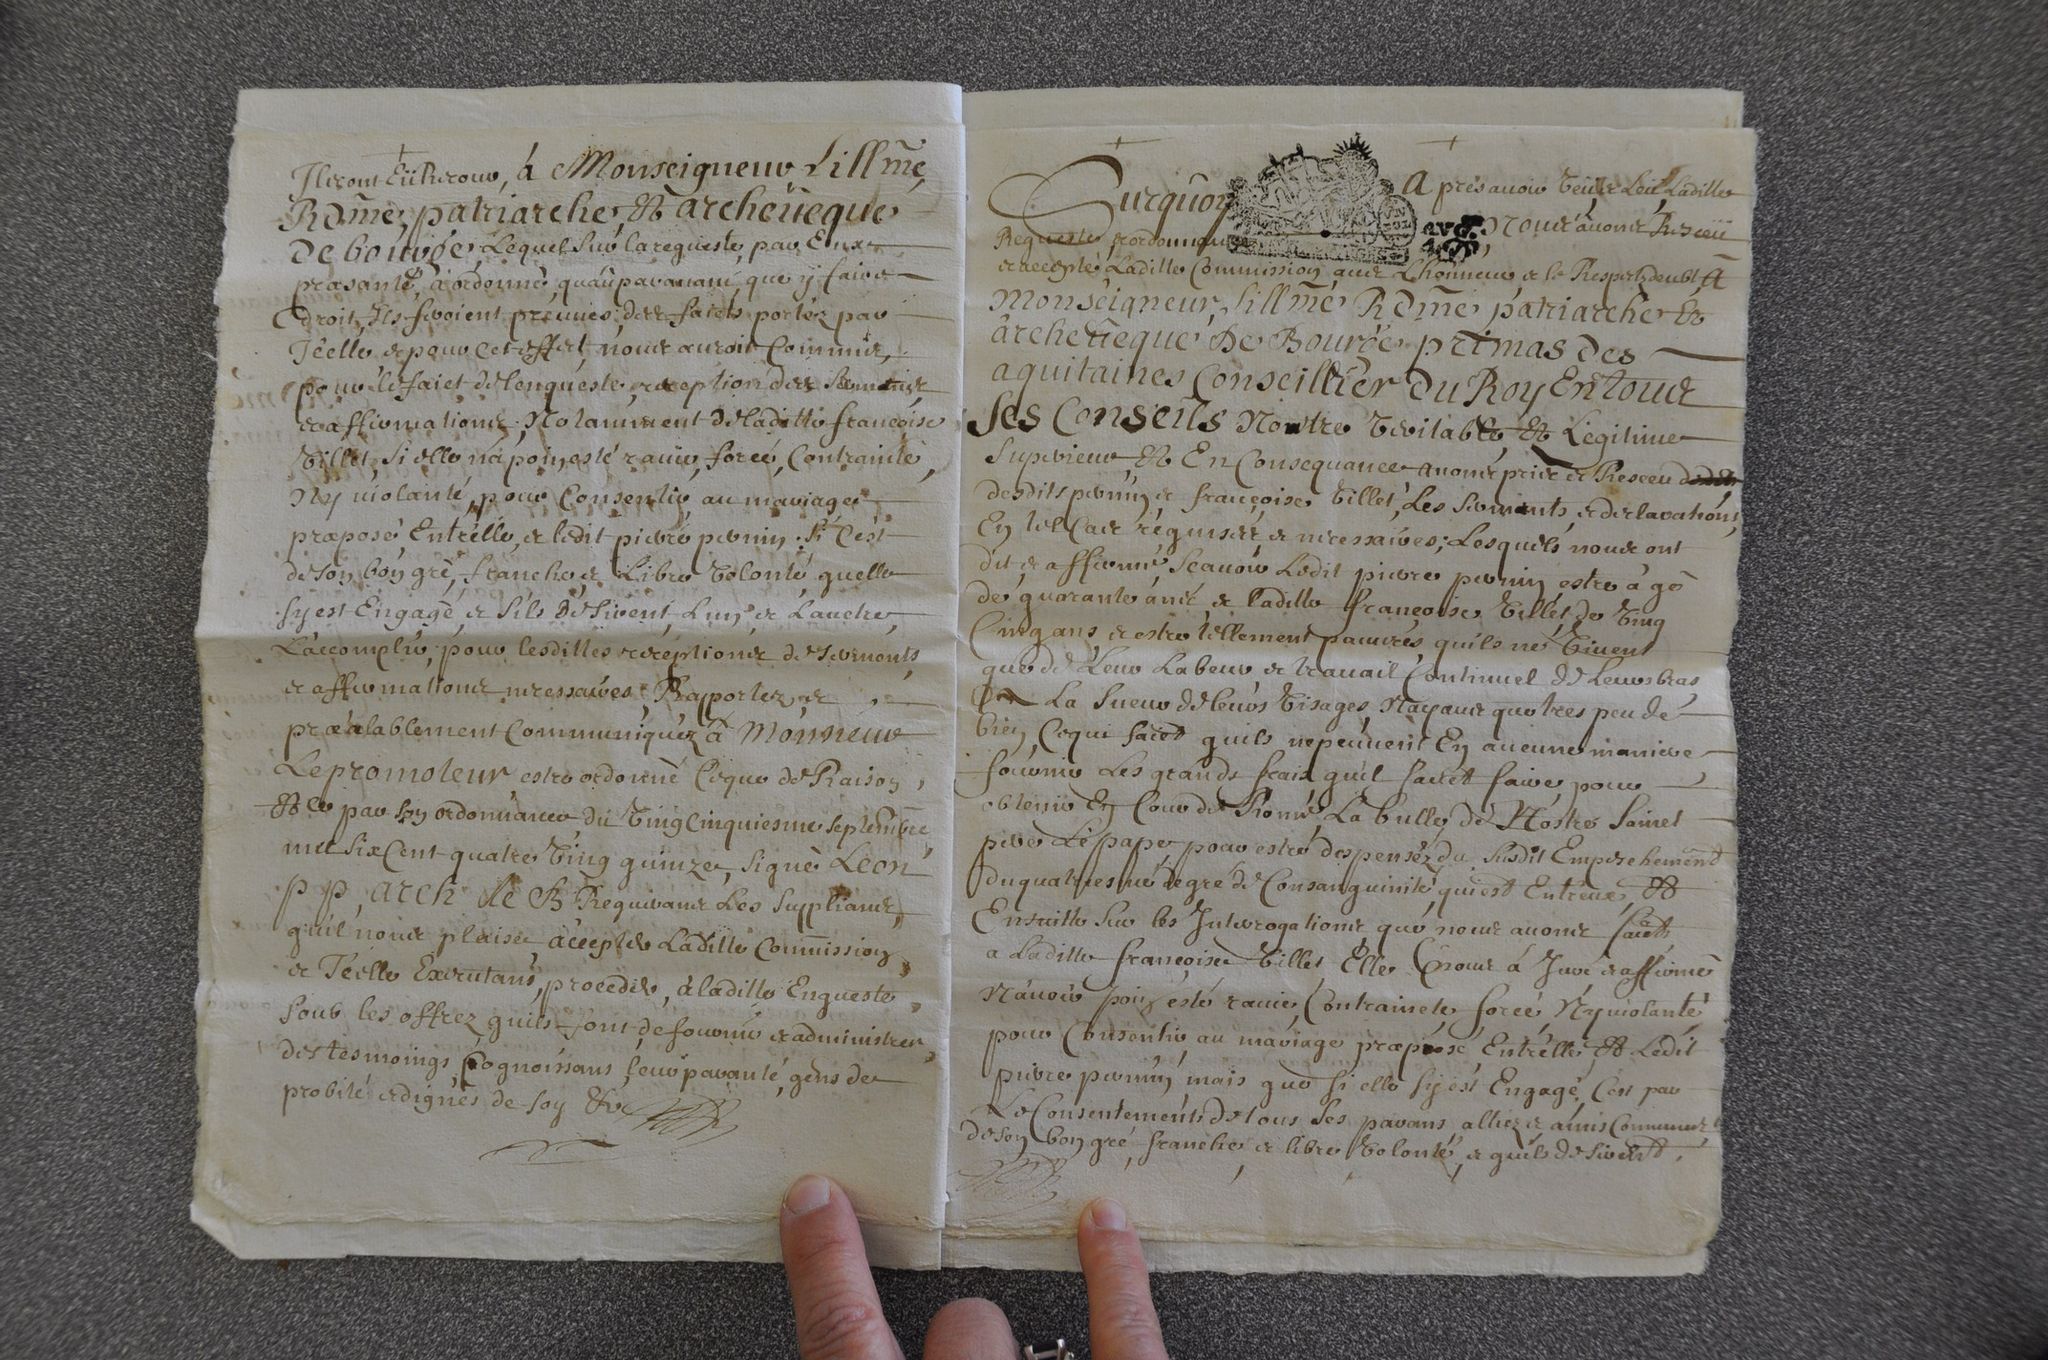 Ils ont eu recour, á Monseigneur Lillme,
Rdme, patriarche et archeüeque
De bourge, Lequel sur la requeste, par Eux
præsanté, à ordonné, quaũparauant que y faire
droit, Ils feroient preuues des faicts portéz par
Icelle, et pour cet effect nous auroit Commis,
pour le faict de lenqueste, reception des Serments
et affirmations, Notamment de laditte françoise
tillet, Si elle n'a poin esté rauie, forcé, Contrainte,
Ny uiolanté, pour Consentir au mariage
præposé Entrelle, et ledit pierre pernin, Si C'est
de son bon gré, franche et Libre Volonté quelle
sy est Engagé, et s'ils désirent Luy et Lautre,
L'accomplir, pour lesdittes receptions de serments
et affirmations necessaires, Rapportez et
præalablement Communiquéz à Monsieur
Le promoteur estre ordonné Ceque de Raison,
Et ce par son ordonnance du Vingcinquiesme septembre
mil six Cent quatre Ving quinze, Signé Leon
P P, arch de B Requerans Les Supplians,
quil nous plaise accepter Laditte Commission
et Icelle Executans, proceder, á laditte Enqueste,
soub les offrez quils font de fournir et administrer,
des tesmoings, Cognoissans leur paranté, gens de
probité et dignes de foy &c
Surquoy Apres auoir Veü et Leü Laditte
Requeste et ordonnance Nous auons Receü
et accepté Laditte Commission auec Lhonneur et le Respect deubt A
Monseigneur, Lillme Rdme patriarche et
archeueque De Bourge primas des
aquitaines Conseillier du Roy En tous
Ses Conseils Nostre Veritable et Legitime
Superieur, et En Consequance auons pris et Receu
desdits pernin et françoise tillet, Les Serments et declarations,
En tel Cas requises et necessaires; Lesquels nous ont
dit et affirmé Scauoir Ledit pierre pernin estre âgé
de quarante ans et laditte françoise tillet de Ving
Cinq ans et estre tellement pauures, quils ne Viuent
que de Leur Labeur et trauail Continuel de Leurs bras
La sueur de leurs Visages, N'ayans que tres peu de
bien, Cequi faict quils ne peuuent En aucune maniere
fournir Les grands frais quil faict faire, pour
obtenir En Cour de Rome La bulle de Nostre Sainct
pere Le pape pour estre dispenséz du Susdit Empeschement
du quatriesme degré de Consanguinité qui est Entr'eux, Et
Ensuitte Sur les Interrogations que nous auons faict
a Laditte françoise tillet Elle Nous á Juré et affirmé
N'auoir poin esté rauie, Contrainete forcé, Ny uiolanté
pour Consentir au mariage præposé Entrelle, et Ledit
pierre pernin, mais que si elle sy est Engagé, C'est par
Le Consentement de tous Ses parans alliez et amis Communs
de son bon gré, franche et libre Volonté, et quils desirent,